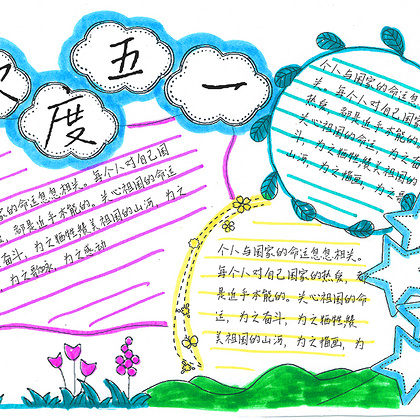 度五一
家的命运息息相关。每个人对自己国
，都是近乎本能的。关心祖国的命运
奋斗，为之牺牲赞美祖国的山河，为之
，为之歌咏，为之感动
个人与国家的命运息息相
关。每个人对自己国家
热泉，都是近乎本能
关心祖国的命运，为之
斗，为之牺牲赞美祖国的
山河，为之描画，为之
个人与国家的命运息息相关。
每个人对自己国家的热泉，都
是近乎本能的。关心祖国的命
运，为之奋斗，为之牺牲赞
美祖国的山河，为之描画，为